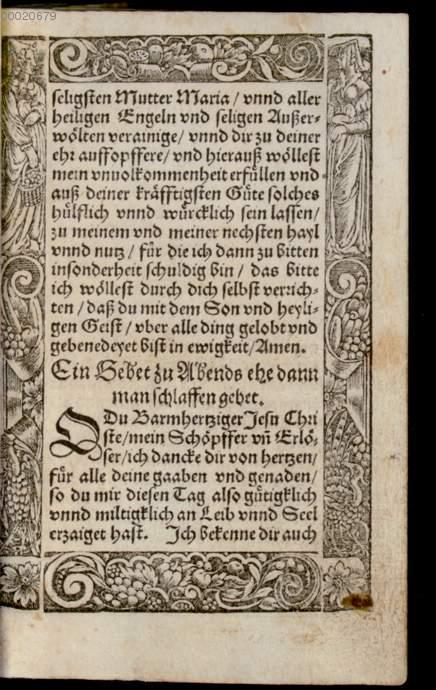 00020679
seligsten Mutter Maria / vnnd aller
heiligen Engeln vnd seligen Außer⸗
wölten verainige / vnnd dir zu deiner
ehr auffopffere / vnd hierauß wöllest
mein vnuolkommenheit erfüllen vnd
auß deiner kräfftigsten Güte solches
hülflich vnnd würcklich sein lassen /
zu meinem vnd meiner nechsten hayl
vnnd nutz / für die ich dann zu bitten
insonderheit schuldig bin / das bitte
ich wöllest durch dich selbst verrich⸗
ten / daß du mit dem Son vnd heyli⸗
gen Geist / vber alle ding gelobt vnd
gebenedeyet bist in ewigkeit / Amen.
Ein Gebet zu Abends ehe dann
man schlaffen gehet.
O Du Barmhertziger Jesu Chri
ste / mein Schöpffer vñ Erlö⸗
ser / ich dancke dir von hertzen /
für alle deine gaaben vnd genaden /
so du mir diesen Tag also gütigklich
vnnd miltigklich an Leib vnnd Seel
erzaiget hast. Ich bekenne dir auch